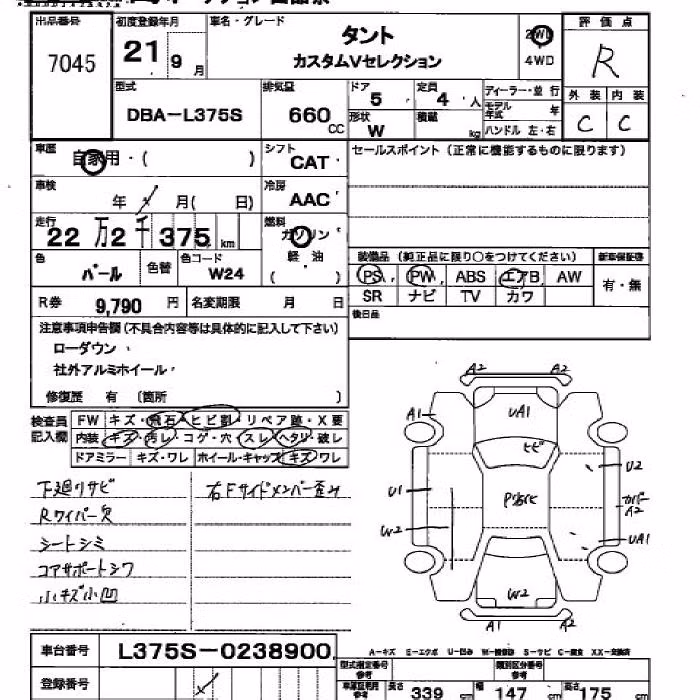 出品番号 初度登録年月 車名・グレード 評価点
7045 21年9月 タント 2WD R
カスタムVセレクション 4WD
型式 排気量 ドア 定員 ディーラー・並行 外装 内装
DBA-L375S 660 CC 5 4 人 モデル年式 年 C C
形状 W 積載 kg ハンドル 左・右
車歴 自家用・( ) シフト CAT セールスポイント (正常に機能するものに限ります)
車検 年 月( 日) 冷房 AAC
走行 22万2千375 km 燃料 ガソリン
軽油
( )
色 パール 色替 色コード W24
装備品 (純正品に限り〇をつけてください) 新車保証書
PS PW ABS エアB AW 有・無
SR ナビ TV カワ
R券 9,790 円 名変期限 月 日 後日品
注意事項申告欄(不具合内容等は具体的に記入して下さい)
ローダウン
社外アルミホイール
修復歴 有 (箇所 )
検査員記入欄 FW キズ・飛石・ヒビ割・リペア跡・X要
内装 キズ・汚レ・コゲ・穴・スレ・ヘタリ・破レ
ドアミラー キズ・ワレ ホイール・キャップ キズ ワレ
下廻りサビ 右Fサイドメンバー歪み
Rワイパー欠
シートシミ
コアサポートシワ
小キズ小凹
A2 A2
A1 UA1
ヒビ
U1 U2
カバー A2
W2 UA1
W2
A1 A2
A-キズ E-エクボ U-凹み W-補修跡 S-サビ C-腐食 XX-交換済
車台番号 L375S-0238900
登録番号
型式指定番号 参考 類別区分番号 参考
参考 長さ 339 cm 幅 147 cm 高さ 175 cm